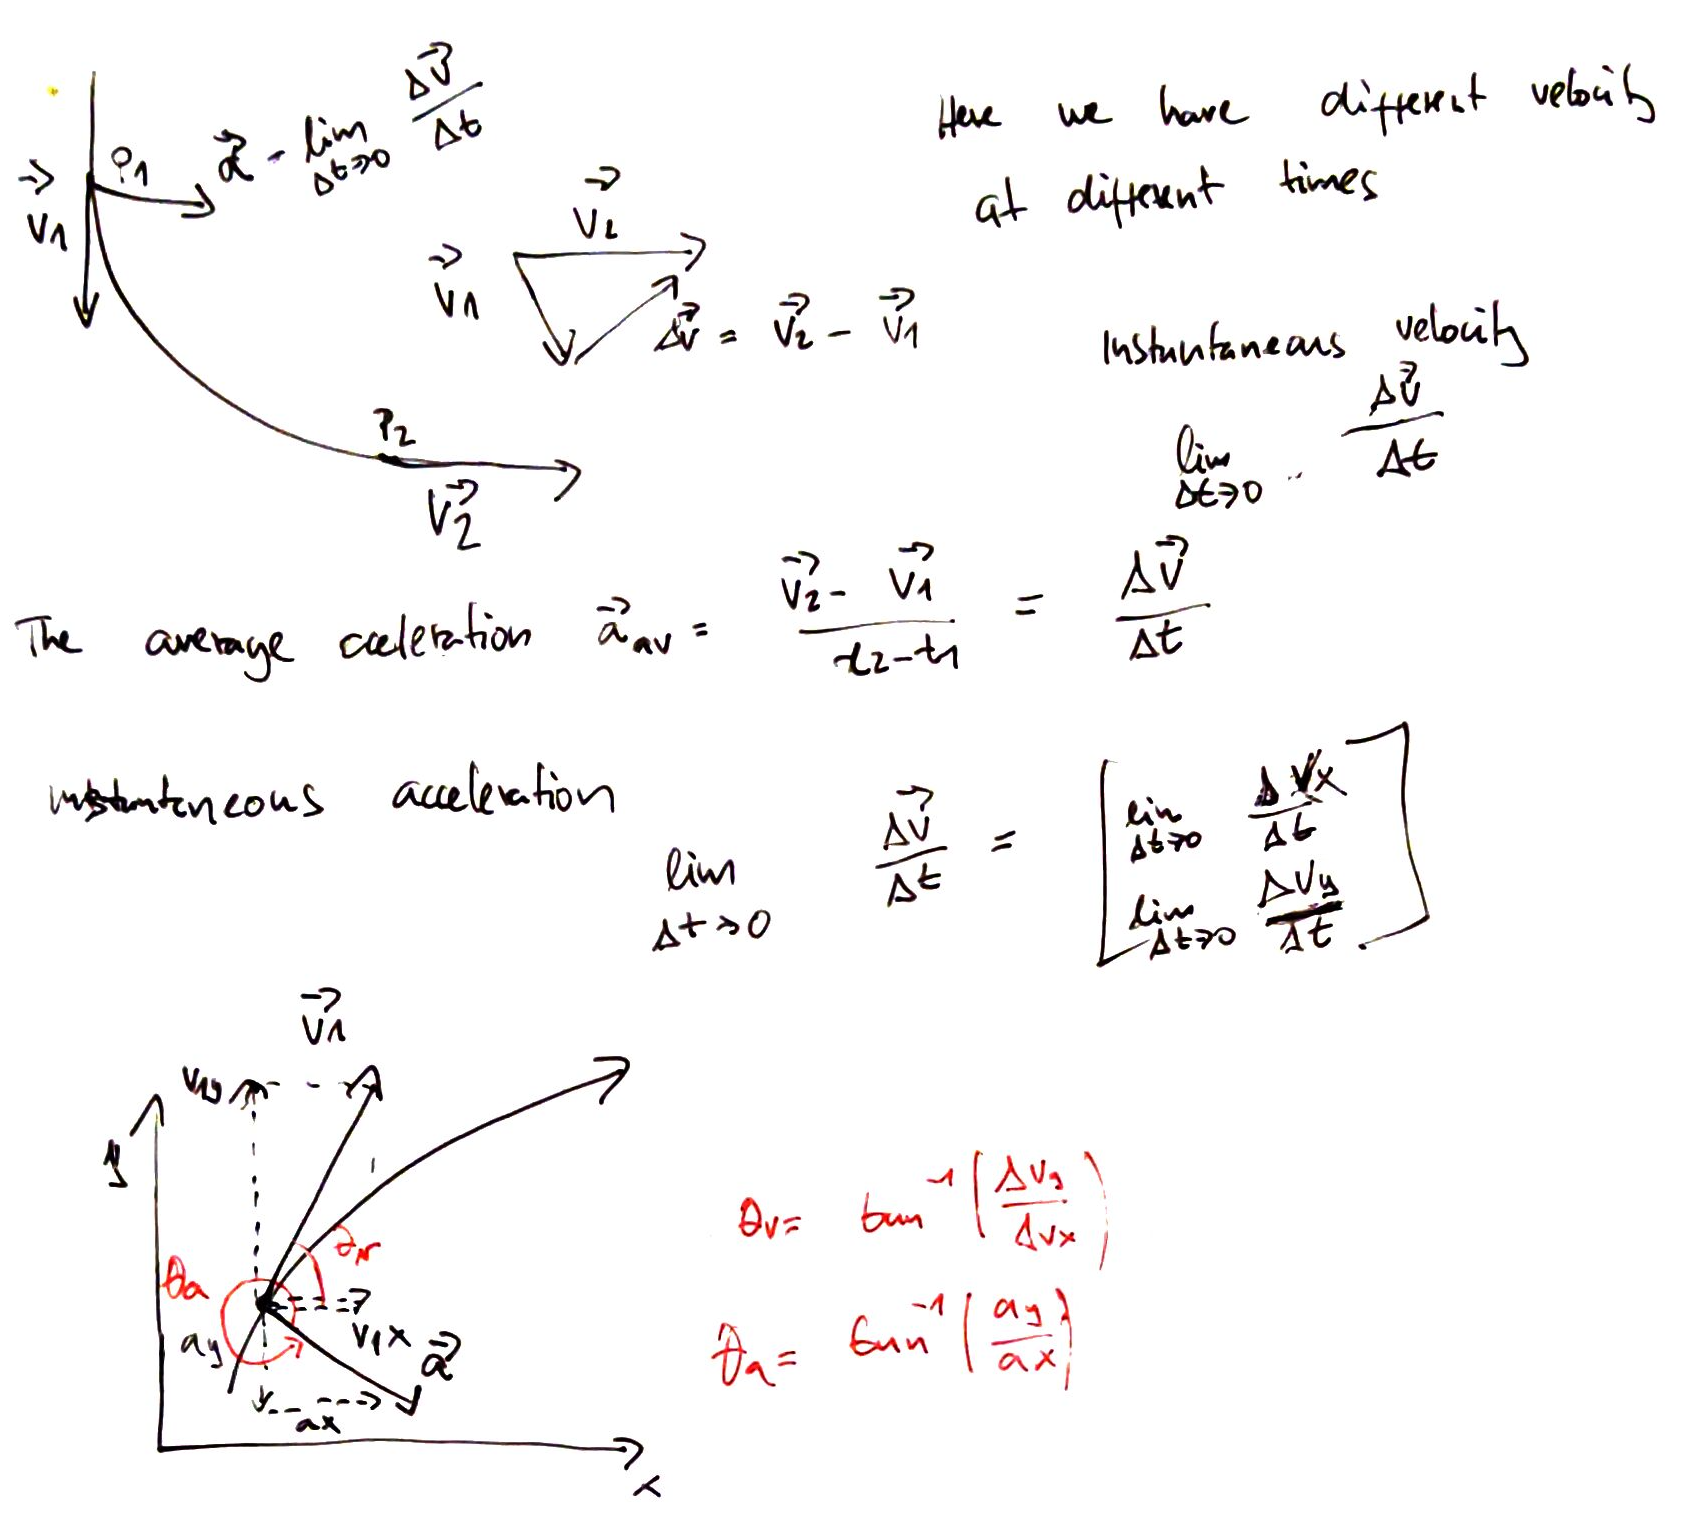 P1 a⃗ - lim Δt→0 Δv⃗/Δt
v⃗1
v⃗2
v⃗1
Δv⃗ = v⃗2 - v⃗1
P2
v⃗2
Here we have different velocity
at different times
Instantaneous velocity
lim Δt→0 Δv⃗/Δt
The average acceleration a⃗av = (v⃗2 - v⃗1)/(t2-t1) = Δv⃗/Δt
instantaneous acceleration
lim Δt→0 Δv⃗/Δt = [lim Δt→0 ΔVx/Δt
lim Δt→0 ΔVy/Δt]
v⃗1
v1y
y
θv
θa
v1x
ay
a⃗
ax
x
θv = tan⁻¹(Δvy/Δvx)
θa = tan⁻¹(ay/ax)